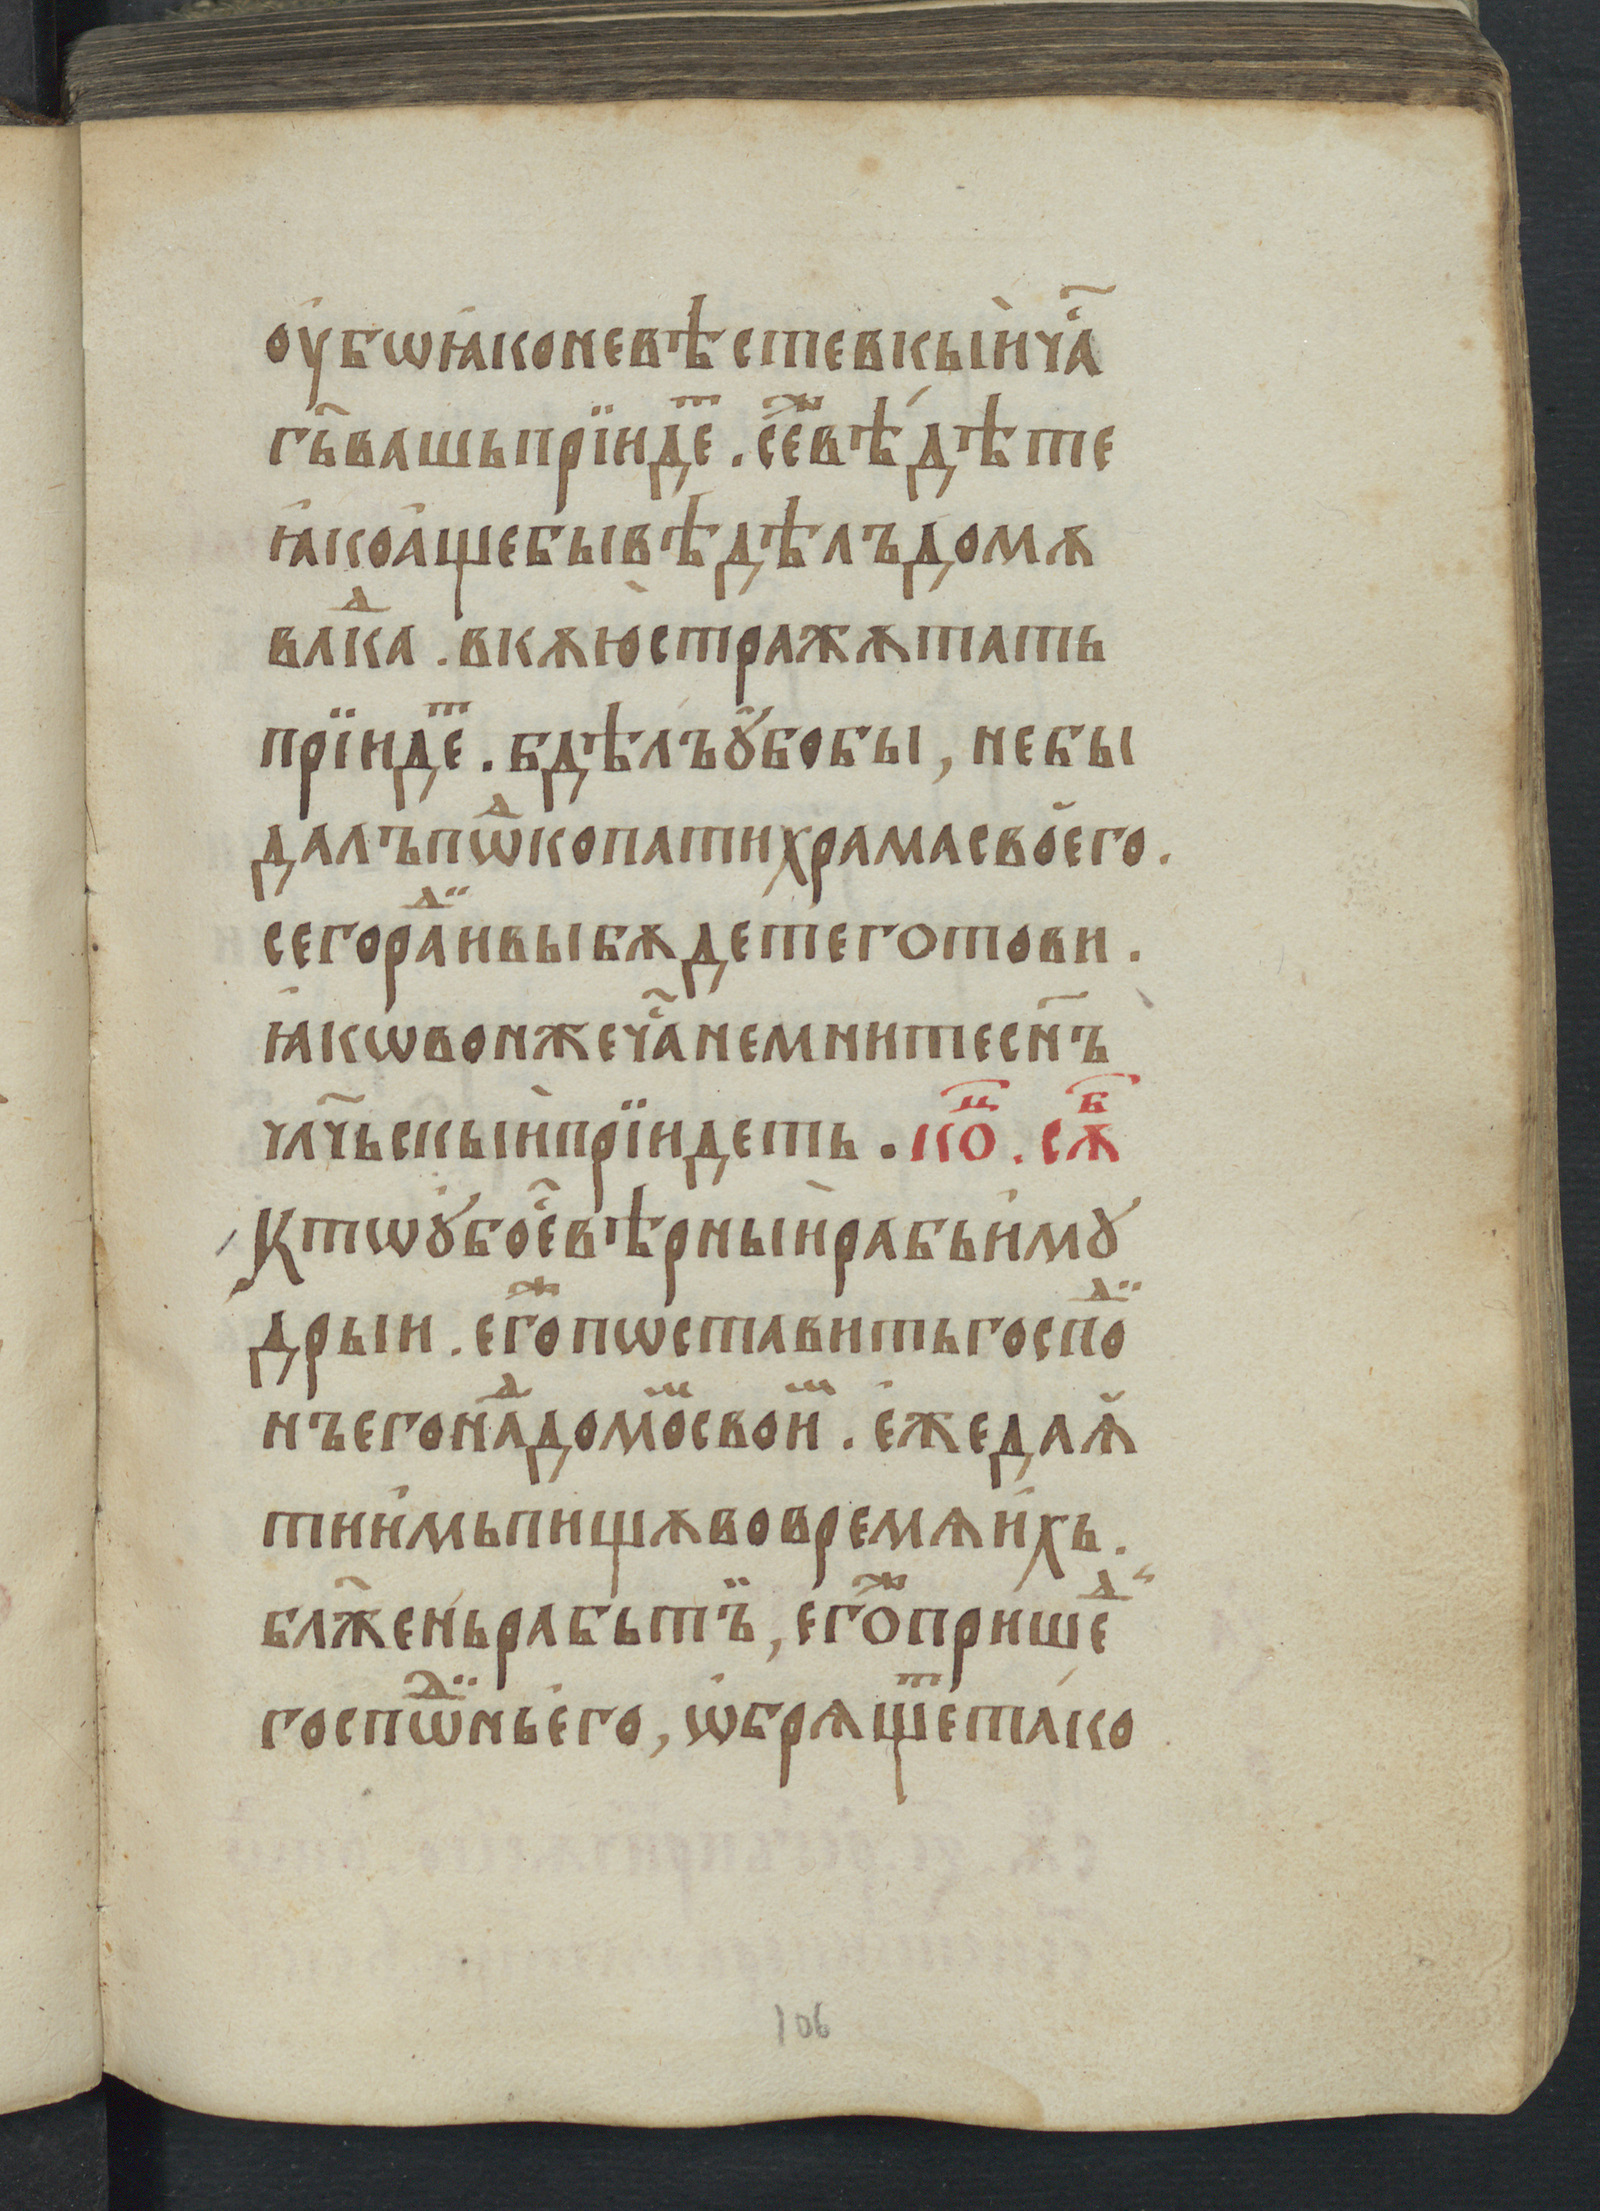 оу҆бѡꙗ҆коневѣстевкыйнча҇
гь҃вашьпрїиде ⷮ. се ⷤвѣ́дѣте
ꙗ҆коа҆щебывѣдѣлъдомꙋ
влⷣка . вкꙋюстражѫтать
прїидеⷮ . бдѣлъꙋ҆бобы , небы
далъпѡⷣкопатихрамасвоего .
сегораⷣивыбѫдетеготови .
ꙗ҆кѡвонжеча҇немнитесн҃ъ
чл҃чьскыйпрїидеть . коⷰ . сѫⷠ
Ктѡꙋ҆бое҇вѣрныйрабьи҆мꙋ
дрыи . егоⷤпѡставитьгоспоⷣ
нъегонаⷣдомоⷨсвоиⷨ . е҆жедаꙗ
тиимьпищѫвовремѧи҆хь .
бл҃женьрабьтъ̈ , егоⷤпришеⷣ
госпѡⷣньего , ѡ҆брѧщеⷮтако
106